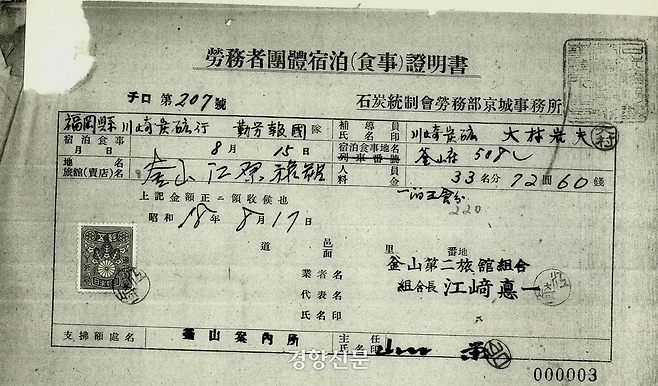 勞務者團體宿泊(食事)證明書
チロ 第207號
石炭統制會勞務部京城事務所
福岡縣川崎炭砿行 勤労報國隊
補導員氏名印 川崎炭砿 大村
宿泊食事月日 8月15日
宿泊食事地名列車番號 釜山
地名旅館(賣店)名 釜山
人員料金 33名分 72圓60錢
上記金額正ニ領收候也
220
昭和18年8月17日
道 邑面 里 番地
業者名 釜山第二旅館組合
代表名 組合長 江﨑悳一
氏名印
支拂額處名 釜山案内所
主任氏名印
경향신문
000003